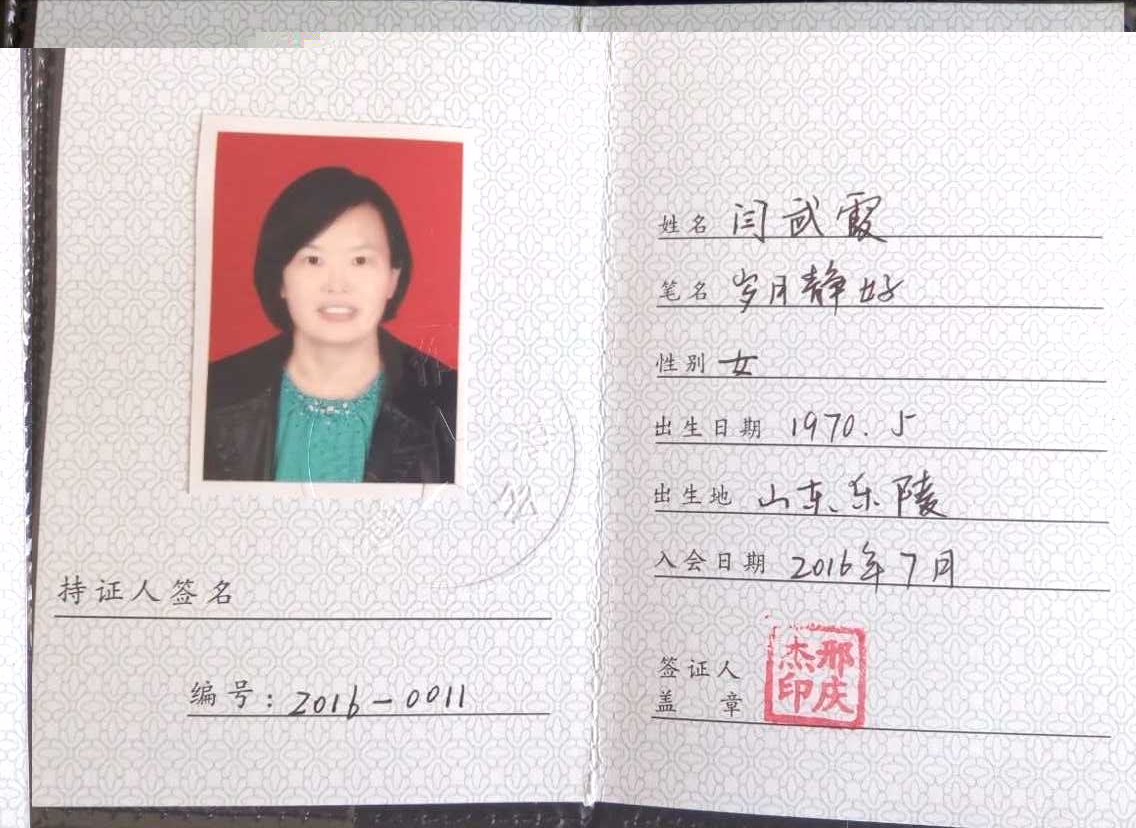 持证人签名
编号：2016-0011
姓名 闫武霞
笔名 岁月静好
性别 女
出生日期 1970.5
出生地 山东、乐陵
入会日期 2016年7月
签证人
盖 章
邢庆杰印